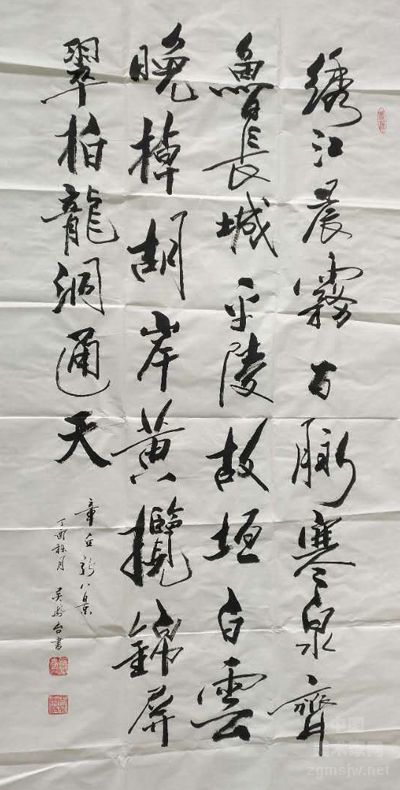 綉江晨霧百脈寒泉齊
魯長城平陵故垣白雲
晚棹胡岸黄攬錦屏
翠柏龍洞通天
章丘新八景
丁酉秋月 吴台書
zgmsjw.net